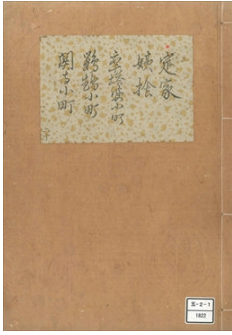 定家
姨捨
卒塔婆小町
鸚鵡小町
関寺小町
五-2-1
1822